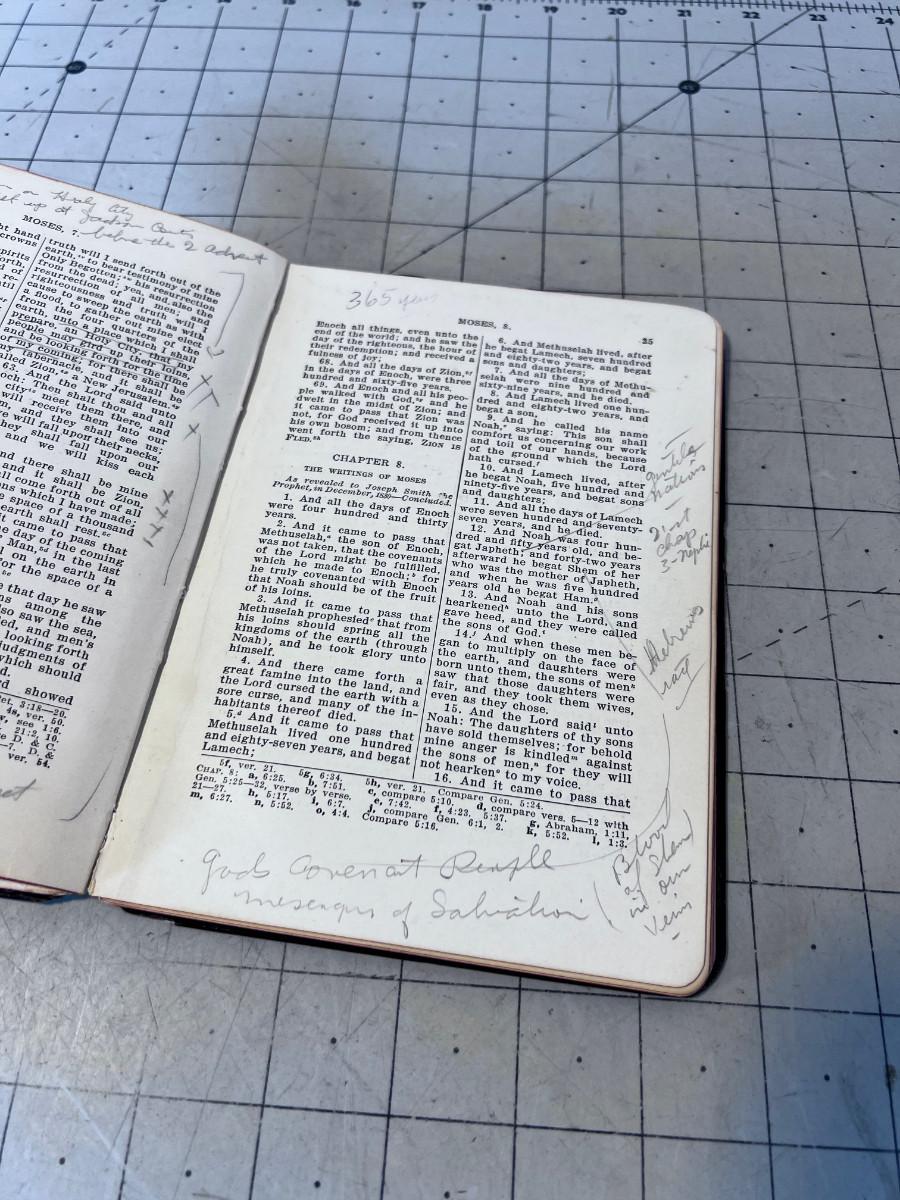 15 16 17 18 19 20 21 22 23 24
a Holy City
set up at Jackson County
before the 2 advent
MOSES, 7.
truth will I send forth out of the
earth, to bear testimony of mine
Only Begotten; his resurrection
from the dead; yea, and also the
resurrection of all men; and
righteousness and truth will I
cause to sweep the earth as with
a flood, to gather out mine elect
from the four quarters of the
earth, unto a place which I shall
prepare, an Holy City, that my
people may gird up their loins,
and be looking forth for the time
of my coming; for there shall be
my tabernacle, and it shall be
called Zion, a New Jerusalem.
63. And the Lord said unto
Enoch: Then shalt thou and all
city meet them there, and
will receive them into our
and they shall see us;
we will fall upon their necks,
they shall fall upon our
and we will kiss each
and there shall be mine
and it shall be Zion,
shall come forth out of all
ions which I have made;
e space of a thousand
earth shall rest.
it came to pass that
he day of the coming
Man, in the last
the earth in
for the space of a
that day he saw
among the
also saw the sea,
bled, and men's
looking forth
judgments of
which should
showed
Pet. 3:18—20.
4s, ver. 50.
see 1:6.
21:2, 10.
D. & C.
7. D. &
ver. 54.
365 years
MOSES, 8.
25
Enoch all things, even unto the
end of the world; and he saw the
day of the righteous, the hour of
their redemption; and received a
fulness of joy;
68. And all the days of Zion,
in the days of Enoch, were three
hundred and sixty-five years.
69. And Enoch and all his peo-
ple walked with God, and he
dwelt in the midst of Zion; and
it came to pass that Zion was
not, for God received it up into
his own bosom; and from thence
went forth the saying, ZION IS
FLED.
CHAPTER 8.
THE WRITINGS OF MOSES
As revealed to Joseph Smith the
Prophet, in December, 1830—Concluded.
1. And all the days of Enoch
were four hundred and thirty
years.
2. And it came to pass that
Methuselah, the son of Enoch,
was not taken, that the covenants
of the Lord might be fulfilled,
which he made to Enoch; for
he truly covenanted with Enoch
that Noah should be of the fruit
of his loins.
3. And it came to pass that
Methuselah prophesied that from
his loins should spring all the
kingdoms of the earth (through
Noah), and he took glory unto
himself.
4. And there came forth a
great famine into the land, and
the Lord cursed the earth with a
sore curse, and many of the in-
habitants thereof died.
5. And it came to pass that
Methuselah lived one hundred
and eighty-seven years, and begat
Lamech;
6. And Methuselah lived, after
he begat Lamech, seven hundred
and eighty-two years, and begat
sons and daughters;
7. And all the days of Methu-
selah were nine hundred and
sixty-nine years, and he died.
8. And Lamech lived one hun-
dred and eighty-two years, and
begat a son,
9. And he called his name
Noah, saying: This son shall
comfort us concerning our work
and toil of our hands, because
of the ground which the Lord
hath cursed.
10. And Lamech lived, after
he begat Noah, five hundred and
ninety-five years, and begat sons
and daughters;
11. And all the days of Lamech
were seven hundred and seventy-
seven years, and he died.
12. And Noah was four hun-
dred and fifty years old, and be-
gat Japheth; and forty-two years
afterward he begat Shem of her
who was the mother of Japheth,
and when he was five hundred
years old he begat Ham.
13. And Noah and his sons
hearkened unto the Lord, and
gave heed, and they were called
the sons of God.
14. And when these men be-
gan to multiply on the face of
the earth, and daughters were
born unto them, the sons of men
saw that those daughters were
fair, and they took them wives,
even as they chose.
15. And the Lord said unto
Noah: The daughters of thy sons
have sold themselves; for behold
mine anger is kindled against
the sons of men, for they will
not hearken to my voice.
16. And it came to pass that
5f, ver. 21. 5g, 6:34. 5h, ver. 21. Compare Gen. 5:24.
CHAP. 8: a, 6:25. b, 7:51. c, compare 5:10. d, compare vers. 5—12 with
Gen. 5:25—32, verse by verse. e, 7:42. f, 4:23. 5:37. g, Abraham, 1:11,
21—27. h, 5:17. i, 6:7. j, compare Gen. 6:1, 2. k, 5:52. l, 1:3.
m, 6:27. n, 5:52. o, 4:4. Compare 5:16.
gentile
nations
21st
chap
3-Nephi
Hebrews
race
Blood
of Shem
in our
veins
Gods Covenant People
mesengers of Salvation